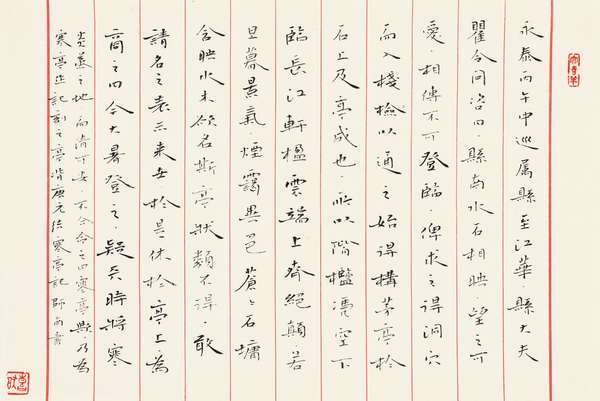 永泰丙午中·巡屬縣至江華·縣大夫
瞿令問咨曰·縣南水石相映·望之可
愛·相傳不可登臨·俾求之得洞穴
而入棧險以通之始得構茅亭於
石上及亭成也·所以階檻憑空下
臨長江軒楹雲端上齊絕顛·若
旦暮景氣·煙靄異色蒼〻石墉
含映水木欲名斯亭狀類不得·敢
請名之表示來世·於是休於亭上為
商之曰今大暑登之·疑天時將寒
炎蒸之地而清可安·不合命之曰寒亭歟·乃為
寒亭作記刻之亭背 唐元結寒亭記